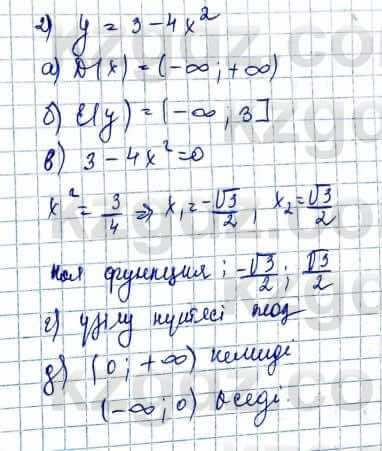 2) y = 3 - 4x²
а) D(x) = (-∞; +∞)
б) E(y) = (-∞; 3]
в) 3 - 4x² = 0
x² = 3/4 ⇒ x₁ = -√3/2, x₂ = √3/2
нол функция: -√3/2; √3/2
г) үзілу нүктесі жоқ
д) (0; +∞) кемиді
(-∞; 0) өседі.